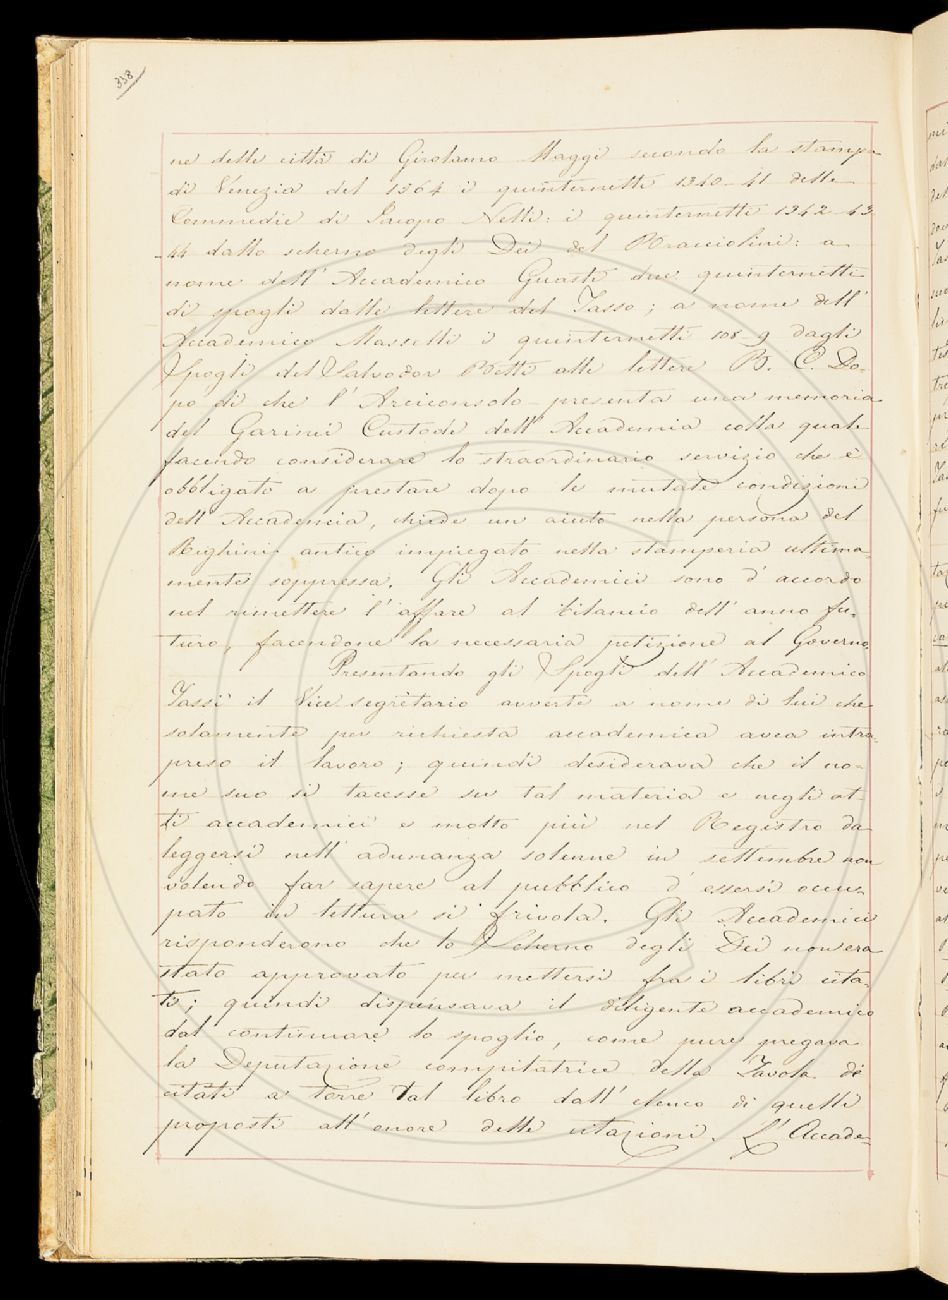 338
ne delle città di Girolamo Maggi secondo la stampa
di Venezia del 1564 i quinternetti 1340-41 delle
Commedie di Jacopo Nelli: i quinternetti 1342-43
-44 dallo scherno degli Dei del Bracciolini: a
nome dell' Accademico Guasti due quinternetti
di spogli dalle lettere del Tasso; a nome dell'
Accademico Masselli i quinternetti 108 9 dagli
Spogli del Salvador Betti alle lettere B. C. Do-
po di che l' Arciconsolo presenta una memoria
del Garinei Custode dell' Accademia colla quale
facendo considerare lo straordinario servizio che è
obbligato a prestare dopo le mutate condizioni
dell' Accademia, chiede un aiuto nella persona del
Righini antico impiegato nella stamperia ultima-
mente soppressa. Gli Accademici sono d' accordo
nel rimettere l' affare al bilancio dell' anno fu-
turo, facendone la necessaria petizione al Governo.
Presentando gli Spogli dell' Accademico
Tassi il Vice segretario avverte a nome di lui che
solamente per richiesta accademica avea intra-
preso il lavoro; quindi desiderava che il no-
me suo si tacesse su tal materia e negli at-
ti accademici e molto più nel Registro da
leggersi nell' adunanza solenne in settembre non
volendo far sapere al pubblico d' essersi occu-
pato in lettura sì frivola. Gli Accademici
risponderono che lo Scherno degli Dei non era
stato approvato per mettersi fra i libri cita-
ti; quindi dispensava il diligente accademico
dal continuare lo spoglio, come pure pregava
la Deputazione compilatrice della Tavola de
citati a torre tal libro dall' elenco di quelli
proposti all' onore delle citazioni. L' Accade-